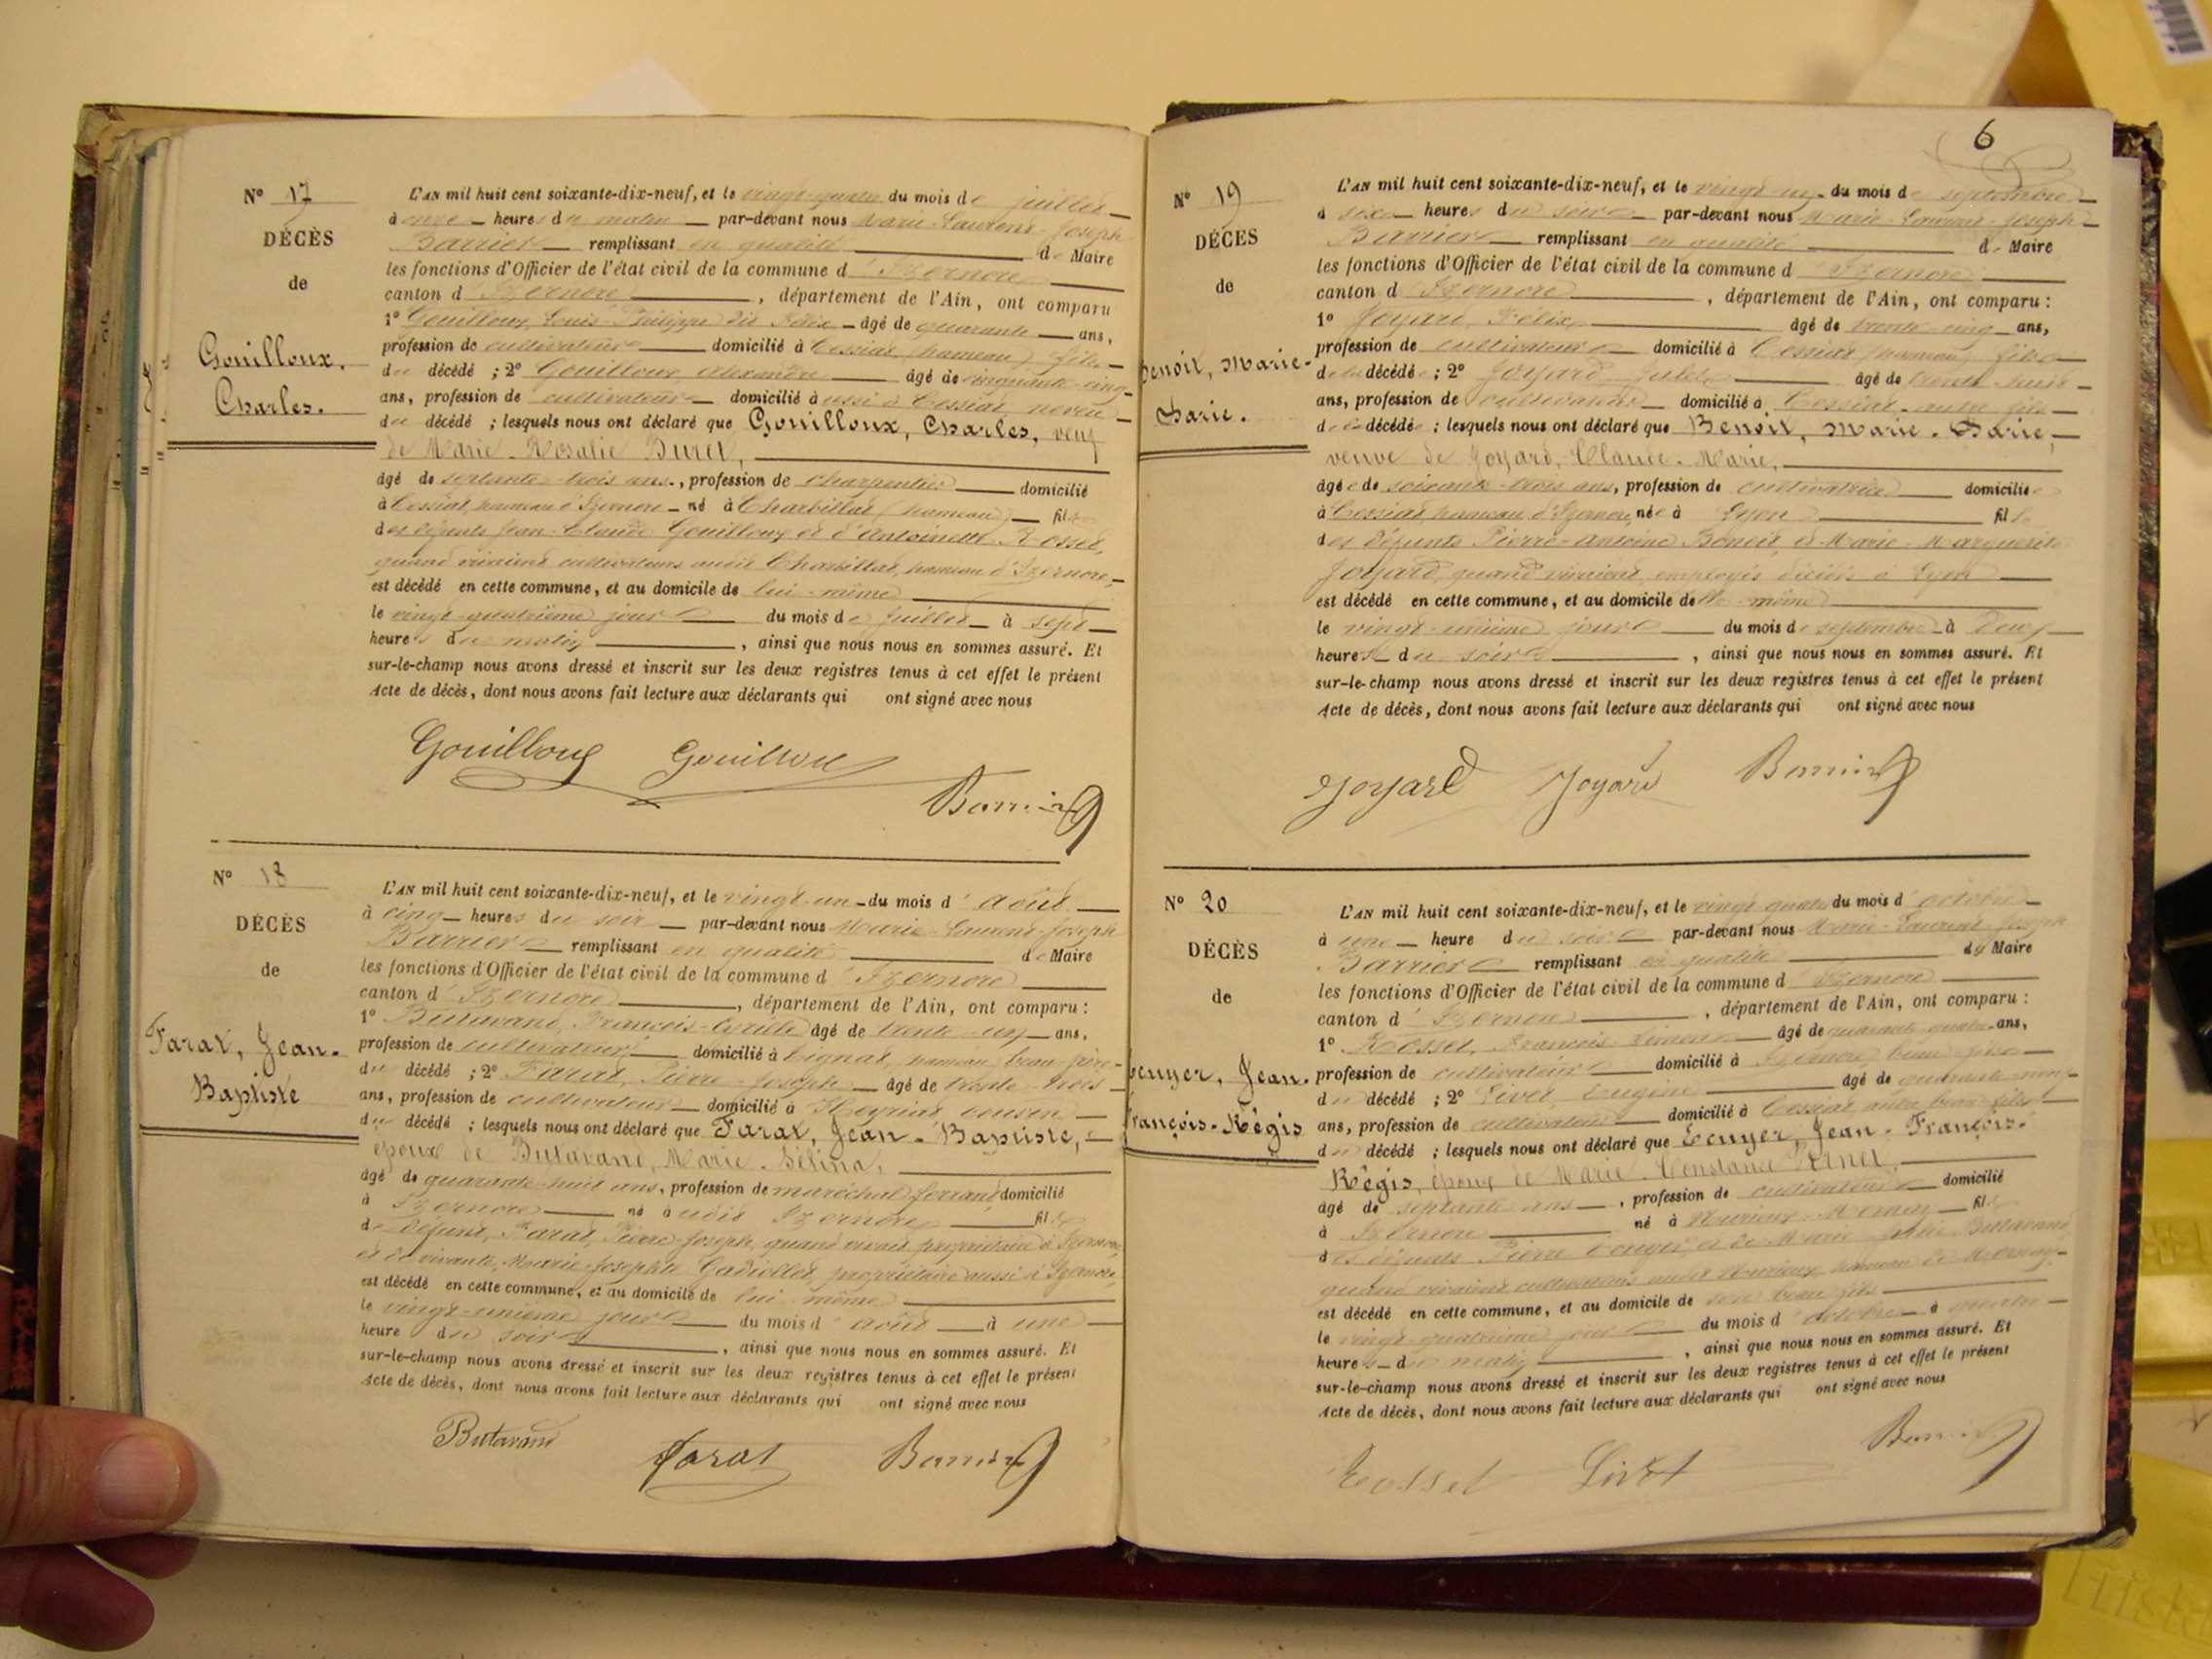 N° 17
DÉCÈS
de
Gouilloux,
Charles.
L'AN mil huit cent soixante-dix-neuf, et le vingt-quatre du mois de juillet
à onze heures du matin par-devant nous Marie-Laurent-Joseph
Barrier remplissant en qualité de Maire
les fonctions d'Officier de l'état civil de la commune d'Izernore
canton d'Izernore, département de l'Ain, ont comparu
1° Gouilloux, Louis-Philippe dit Félix âgé de quarante ans,
profession de cultivateur domicilié à Cessiat (hameau) fils
du décédé ; 2° Gouilloux, Alexandre âgé de cinquante-cinq
ans, profession de cultivateur domicilié aussi à Cessiat, neveu
du décédé ; lesquels nous ont déclaré que Gouilloux, Charles, veuf
de Marie-Rosalie Buret,
âgé de septante-trois ans, profession de charpentier domicilié
à Cessiat, hameau d'Izernore né à Charbillat (hameau) fils
des défunts Jean-Claude Gouilloux et d'Antoinette Rosset,
quand vivaient cultivateurs audit Charbillat, hameau d'Izernore
est décédé en cette commune, et au domicile de lui-même
le vingt-quatrième jour du mois de juillet à sept
heures du matin, ainsi que nous nous en sommes assuré. Et
sur-le-champ nous avons dressé et inscrit sur les deux registres tenus à cet effet le présent
Acte de décès, dont nous avons fait lecture aux déclarants qui ont signé avec nous
Gouilloux Gouilloux
Barrier
N° 18
DÉCÈS
de
Farat, Jean-
Baptiste
L'AN mil huit cent soixante-dix-neuf, et le vingt-un du mois d'août
à cinq heures du soir par-devant nous Marie-Laurent-Joseph
Barrier remplissant en qualité de Maire
les fonctions d'Officier de l'état civil de la commune d'Izernore
canton d'Izernore, département de l'Ain, ont comparu :
1° Butavand, François âgé de trente-un ans,
profession de cultivateur domicilié à hameau, beau-frère
du décédé ; 2° Farat, Pierre-Joseph âgé de trente-trois
ans, profession de cultivateur domicilié à Heyriat cousin
du décédé ; lesquels nous ont déclaré que Farat, Jean-Baptiste,
époux de Butavand, Marie-Sélina,
âgé de quarante-huit ans, profession de maréchal ferrant domicilié
à Izernore né audit Izernore fils
de défunt, Farat, Pierre-Joseph, quand vivait propriétaire à Izernore
et de vivante, Marie-Josephte propriétaire aussi à Izernore
est décédé en cette commune, et au domicile de lui-même
le vingt-unième jour du mois d'août à une
heure du soir, ainsi que nous nous en sommes assuré. Et
sur-le-champ nous avons dressé et inscrit sur les deux registres tenus à cet effet le présent
Acte de décès, dont nous avons fait lecture aux déclarants qui ont signé avec nous
Butavand Farat Barrier
6
N° 19
DÉCÈS
de
Benoit, Marie-
Darie.
L'AN mil huit cent soixante-dix-neuf, et le vingt-un du mois de septembre
à six heures du soir par-devant nous Marie-Laurent-Joseph
Barrier remplissant en qualité de Maire
les fonctions d'Officier de l'état civil de la commune d'Izernore
canton d'Izernore, département de l'Ain, ont comparu :
1° Joyard, Félix âgé de trente-cinq ans,
profession de cultivateur domicilié à Cessiat (hameau) fils
de la décédée ; 2° Joyard, Jules âgé de trente-huit
ans, profession de cultivateur domicilié à Cessiat autre fils
de la décédée ; lesquels nous ont déclaré que Benoit, Marie-Darie,
veuve de Joyard, Claude-Marie,
âgée de soixante-trois ans, profession de cultivatrice domiciliée
à Cessiat, hameau d'Izernore, née à Lyon fille
des défunts Pierre-Antoine Benoit, et Marie-Marguerite
Joyard, quand vivaient employés décédés à Lyon
est décédé en cette commune, et au domicile de elle-même
le vingt-unième jour du mois de septembre à deux
heures du soir, ainsi que nous nous en sommes assuré. Et
sur-le-champ nous avons dressé et inscrit sur les deux registres tenus à cet effet le présent
Acte de décès, dont nous avons fait lecture aux déclarants qui ont signé avec nous
Joyard Joyard Barrier
N° 20
DÉCÈS
de
Ecuyer, Jean-
François-Régis
L'AN mil huit cent soixante-dix-neuf, et le vingt-quatre du mois d'octobre
à une heure du soir par-devant nous Marie-Laurent-Joseph
Barrier remplissant en qualité de Maire
les fonctions d'Officier de l'état civil de la commune d'Izernore
canton d'Izernore, département de l'Ain, ont comparu :
1° Rosset, François âgé de quarante-quatre ans,
profession de cultivateur domicilié à Izernore beau-fils
du décédé ; 2° Livet Eugène âgé de quarante-neuf
ans, profession de cultivateur domicilié à Cessiat autre beau-fils
du décédé ; lesquels nous ont déclaré que Ecuyer, Jean-François-
Régis, époux de Marie-Constance
âgé de septante ans, profession de cultivateur domicilié
à Izernore né à Mornay fils
des défunts Pierre Ecuyer, et de Marie Butavand
quand vivaient cultivateurs hameau de Mornay
est décédé en cette commune, et au domicile de son beau-fils
le vingt-quatrième jour du mois d'octobre à quatre
heures du matin, ainsi que nous nous en sommes assuré. Et
sur-le-champ nous avons dressé et inscrit sur les deux registres tenus à cet effet le présent
Acte de décès, dont nous avons fait lecture aux déclarants qui ont signé avec nous
Rosset Livet Barrier